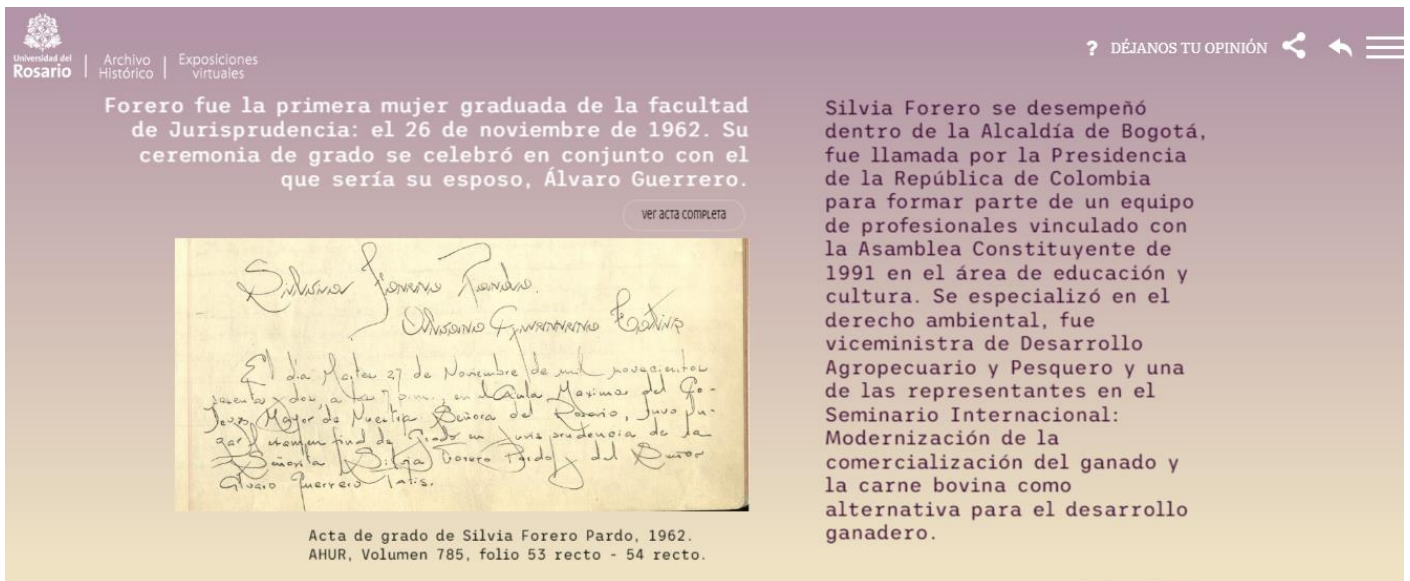 Universidad del
Rosario
Archivo
Histórico
Exposiciones
virtuales
? DÉJANOS TU OPINIÓN
Forero fue la primera mujer graduada de la facultad
de Jurisprudencia: el 26 de noviembre de 1962. Su
ceremonia de grado se celebró en conjunto con el
que sería su esposo, Álvaro Guerrero.
ver acta completa
Silvia Forero Pardo.
Alvaro Guerrero
El día Martes 27 de Noviembre de mil novecientos
sesenta y dos, a las 7 p.m., en el Aula Maxima del Co-
legio Mayor de Nuestra Señora del Rosario, tuvo lu-
gar el examen final de Grado en Jurisprudencia de la
Señorita Silvia Forero Pardo y del Señor
Alvaro Guerrero
Acta de grado de Silvia Forero Pardo, 1962.
AHUR, Volumen 785, folio 53 recto - 54 recto.
Silvia Forero se desempeñó
dentro de la Alcaldía de Bogotá,
fue llamada por la Presidencia
de la República de Colombia
para formar parte de un equipo
de profesionales vinculado con
la Asamblea Constituyente de
1991 en el área de educación y
cultura. Se especializó en el
derecho ambiental, fue
viceministra de Desarrollo
Agropecuario y Pesquero y una
de las representantes en el
Seminario Internacional:
Modernización de la
comercialización del ganado y
la carne bovina como
alternativa para el desarrollo
ganadero.